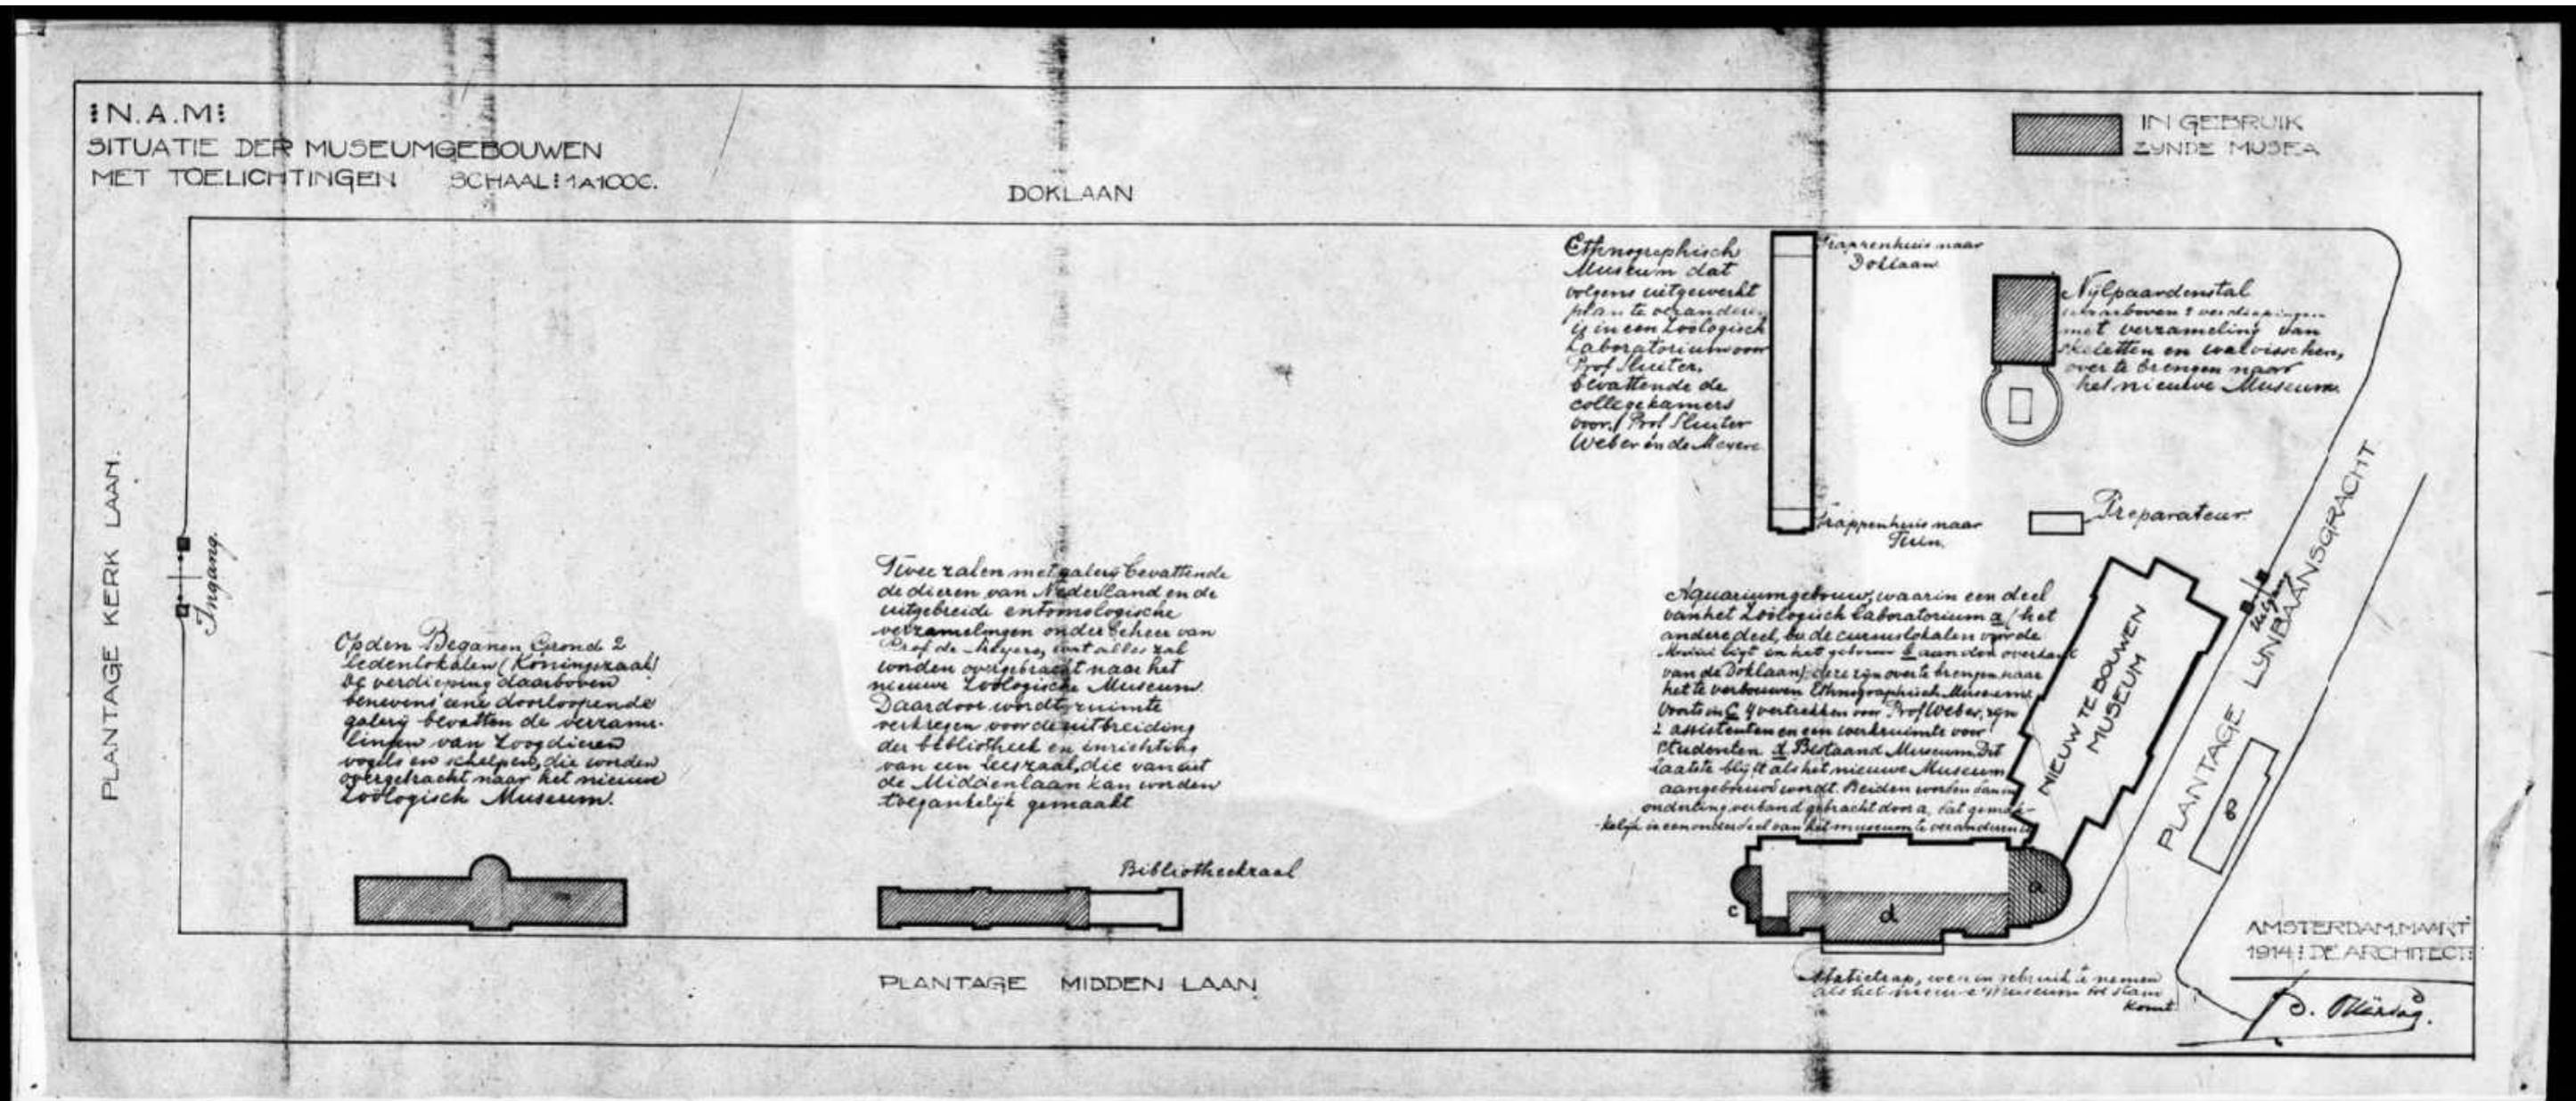 N.A.M:
SITUATIE DER MUSEUMGEBOUWEN
MET TOELICHTINGEN SCHAAL: 1 A 1000.
IN GEBRUIK
ZYNDE MUSEA
DOKLAAN
PLANTAGE KERK LAAN.
Ingang.
Op den Beganen Grond 2
ledenlokalen (Koningszaal)
De verdieping daarboven
benevens eene doorloopende
galerij bevatten de verzame-
lingen van Zoogdieren
vogels en schelpen, die worden
overgebracht naar het nieuwe
Zoölogisch Museum.
Twee zalen met galerij bevattende
de dieren van Nederland en de
uitgebreide entomologische
verzamelingen onder beheer van
Prof de Meyere, wat alles zal
worden overgebracht naar het
nieuwe Zoölogische Museum.
Daardoor wordt ruimte
verkregen voor de uitbreiding
der bibliotheek en inrichting
van een leeszaal, die van uit
de Middenlaan kan worden
toegankelijk gemaakt
Bibliotheekzaal
PLANTAGE MIDDEN LAAN
Ethnographisch
Museum dat
volgens uitgewerkt
plan te veranderen
is in een Zoölogisch
Laboratorium voor
Prof Sluiter,
bevattende de
collegekamers
voor Prof Sluiter
Weber en de Meyere
Trappenhuis naar
Doklaan
Trappenhuis naar
Tuin.
Nijlpaardenstal
daarboven 2 verdiepingen
met verzameling van
skeletten en walvisschen,
over te brengen naar
het nieuwe Museum.
Preparateur
Aquariumgebouw, waarin een deel
van het Zoölogisch laboratorium a (het
andere deel, de cursuslokalen voor de
ligt in het gebouw b aan den overkant
van de Doklaan) deze zijn over te brengen naar
het te verbouwen Ethnographisch Museum,
voorts in C 4 vertrekken voor Prof Weber, zijn
2 assistenten en een werkruimte voor
studenten d Bestaand Museum. Dit
laatste blijft als het nieuwe Museum
aangebouwd wordt. Beiden worden dan in
onderling verband gebracht door a, dat gemak-
-kelijk in een onderdeel van het museum te veranderen is
NIEUW TE BOUWEN
MUSEUM
Uitgang
PLANTAGE LYNBAANSGRACHT
a
c
d
Statietrap, weer in gebruik te nemen
als het nieuwe Museum tot stand
komt
AMSTERDAM, MAART
1914: DE ARCHITECT: